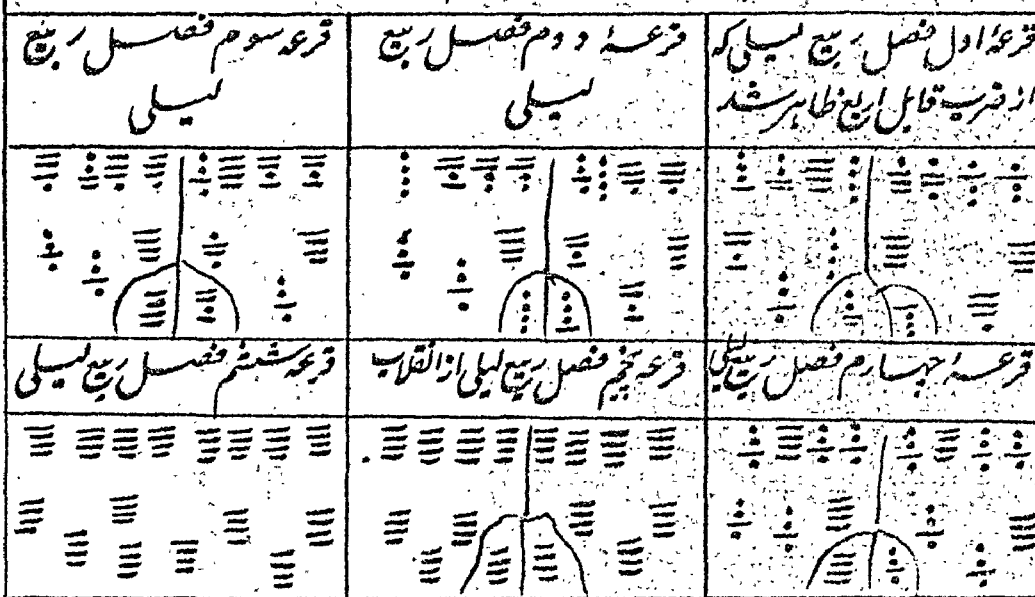 قرعهٔ اول فصل ربیع لیلی که
از ضرب قابل اربع ظاہر شد
قرعهٔ دوم فصل ربیع
لیلی
قرعہ سوم فصل ربیع
لیلی
قرعهٔ چہارم فصل ربیع لیلی
قرعہ پنجم فصل ربیع لیلی از انقلاب
قرعہ ششم فصل ربیع لیلی